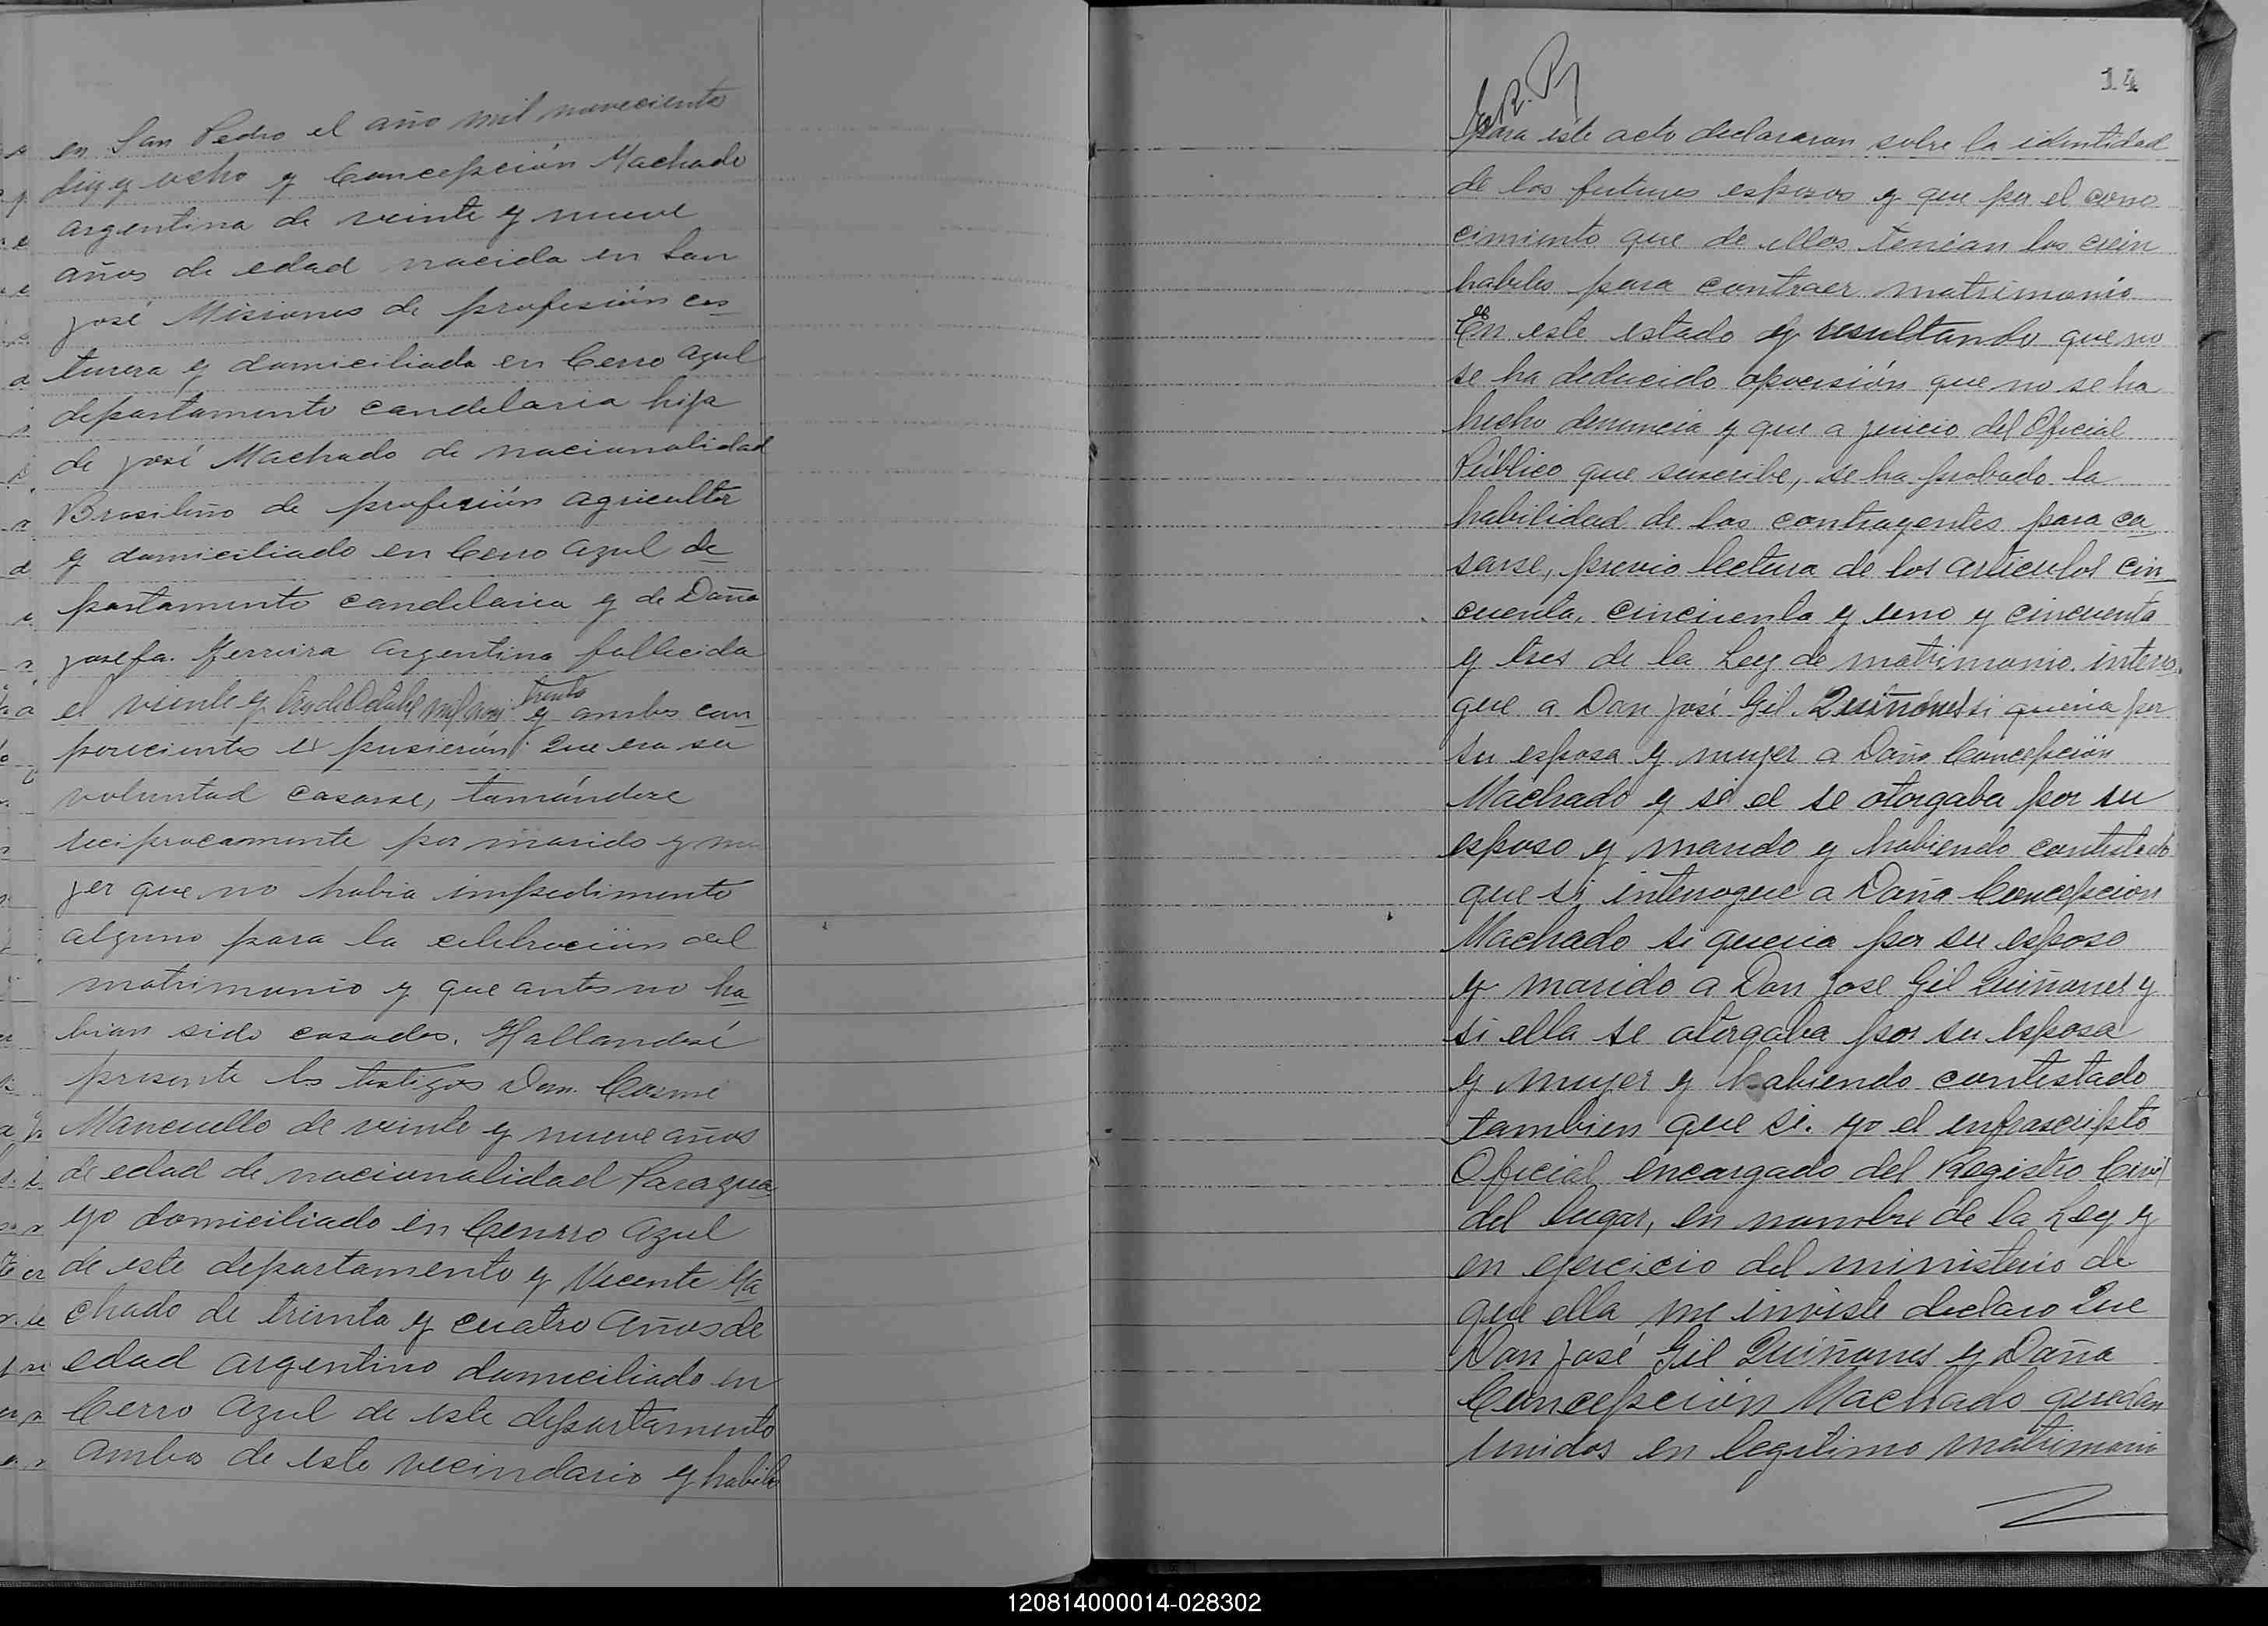 en San Pedro el año mil noveciento
diez y ocho y Concepción Machado
argentina de veinte y nueve
años de edad nacida en San
José Misiones de profesión cos
turera y domiciliada en Cerro Azul
departamento candelaria hija
de José Machado de nacionalidad
Brasileño de profesión agricultor
y domiciliado en Cerro Azul de
partamento candelaria y de Doña
Josefa Ferreira Argentina fallecida
trenta
el veinte y de Octubre mil y ambos con
parecientes expusierón: Que era su
voluntad casarse, tomándose
reciprocamente por marido y mu
jer que no habia impedimento
alguno para la celebración del
matrimonio y que antes no ha
bian sido casados. Hallandosé
presente los testigos Don. Cosme
Mancuello de veinte y nueve años
de edad de nacionalidad Paragua
yo domiciliado en Cerrro Azul
de este departamento y Vicente Ma
chado de trienta y cuatro Años de
edad argentino domiciliado en
Cerro Azul de este departamento
ambos de este vecindario y habiles
14
para este acto declararon sobre la identidad
de los futuros esposos y que por el cono
cimiento que de ellos tenian los crein
habiles para contraer matrimonio
En este estado y resultando que no
se ha deducido oposisión que no se ha
hecho denuncia y que a juicio del Oficial
Público que suscribe, se ha probado la
habilidad de los contrayentes para ca
sarse, previo lectura de los articulos cin
cuenta, cincuenta y uno y cincuenta
y tres de la Ley de matrimonio. interro
gue a Don José Gil Quiñones si queria por
su esposa y mujer a Doña Concepción
Machado y si el se otorgaba por su
esposo y marido y habiendo contestado
que si interrogue a Doña Concepcion
Machado si queria por su esposo
y marido a Don Jose Gil Quiñones y
si ella se otorgaba por su esposa
y mujer y habiendo contestado
tambien que si. yo el infrascripto
Oficial encargado del Registro Civil
del lugar, en nombre de la Ley y
en ejercicio del ministerio de
que ella me inviste declaro Que
Don José Gil Quiñones y Doña
Concepción Machado quedan
unidos en legitimo matrimonio
120814000014-028302